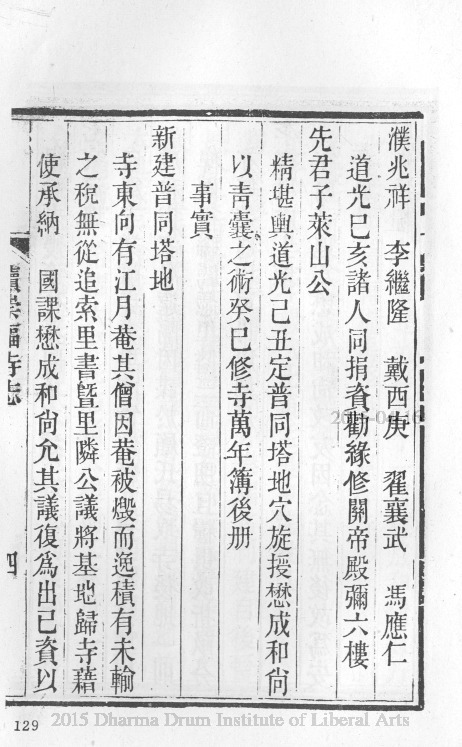 濮兆祥　李繼隆　戴西庚　翟襄武　馮應仁
道光己亥諸人同捐資勸緣修關帝殿彌六樓
先君子萊山公
精堪輿道光己丑定普同塔地穴旋授懋成和尙
以靑囊之術癸巳修寺萬年簿後册
事實
新建普同塔地
寺東向有江月菴其僧因菴被燬而逸積有未輸
之稅無從追索里書暨里隣公議將基地歸寺藉
使承納　國課懋成和尙允其議復爲出己資以
續崇福寺志
四
129
2015 Dharma Drum Institute of Liberal Arts